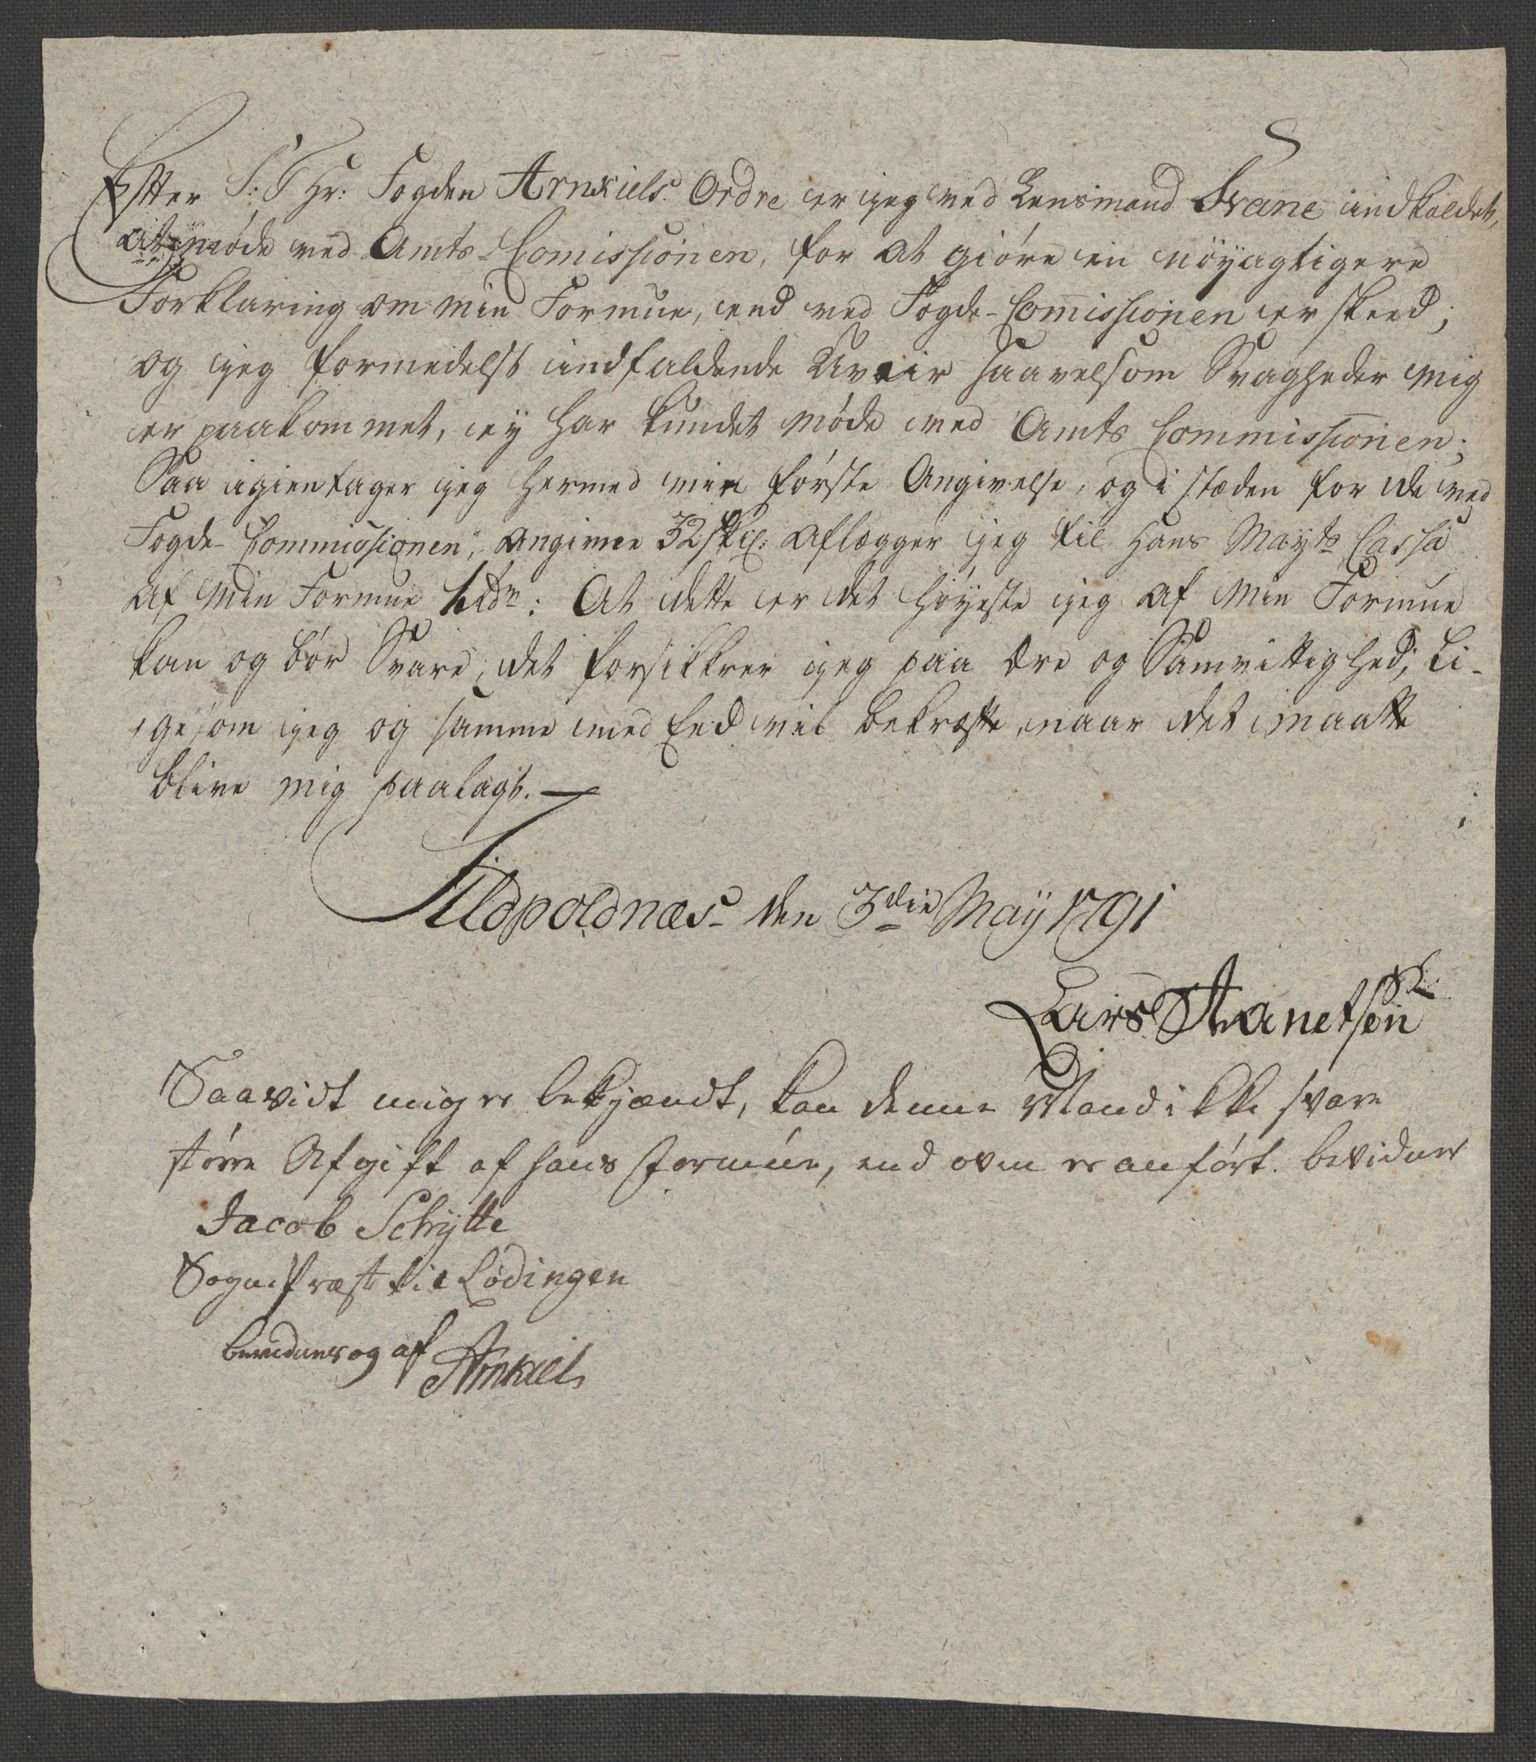 Efter S: T Hr: Fogden Arnkiels Ordre er jeg ved Lensmand Svane indkaldet,
at møde ved Amts-Comissionen, for at giøre en nøyagtigere
Forklaring om min Formue, end ved Fogde-Comissionen er skeed;
og jeg formedelst indfaldende Uveir saavelsom Svagheder mig
er paakommet, ey har kundet møde ved Amts Commissionen;
Saa igientager jeg hermed min første Angivelse, og i stæden for de ved
Fogde-Commissionen, angivne 32 skil: aflægger jeg til Hans Mayts Cassa
af min Formue 1 rdr: At dette er det høyeste jeg af min Formue
kan og bør Svare, det forsikkrer jeg paa Ære og Samvittighed; li-
gesom jeg og samme med Eed vil bekræfte, naar det maatte
blive mig paalagt.
Sildpoldnæs den 3die May 1791
Lars Aanetsen
Saavidt mig er bekjændt, kan denne Mand ikke svare
større Afgift af hans Formúe, end oven er anført. bevidner
Jacob Schytte
Sognepræst til Lødingen
bevidnes og af
Arnkiel